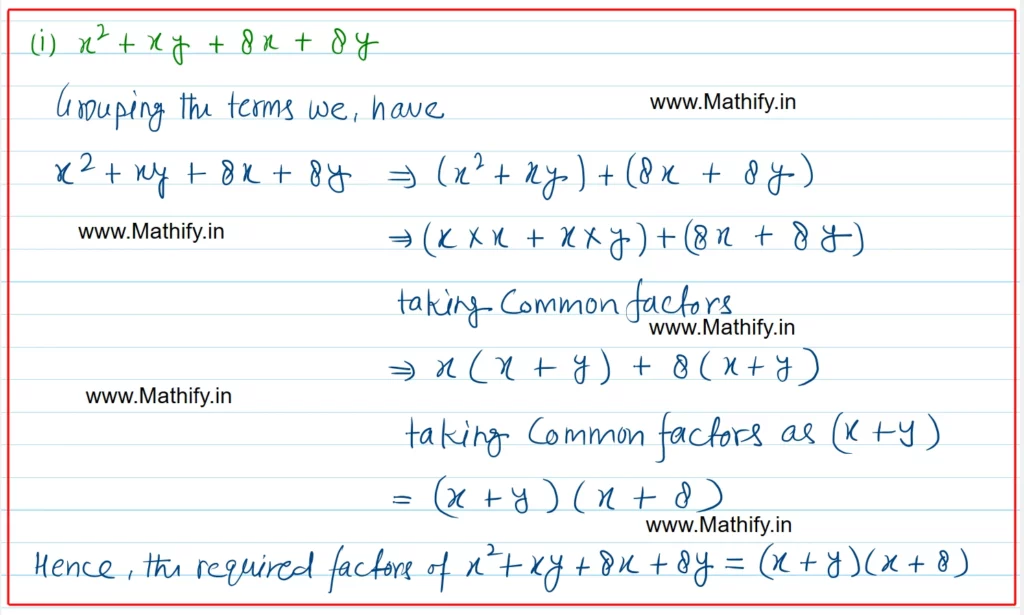 (i) x² + xy + 8x + 8y
Grouping the terms we, have
www.Mathify.in
x² + xy + 8x + 8y ⇒ (x² + xy) + (8x + 8y)
www.Mathify.in
⇒ (x × x + x × y) + (8x + 8y)
taking Common factors
www.Mathify.in
⇒ x(x + y) + 8(x + y)
www.Mathify.in
taking Common factors as (x + y)
= (x + y)(x + 8)
www.Mathify.in
Hence, the required factors of x² + xy + 8x + 8y = (x + y)(x + 8)